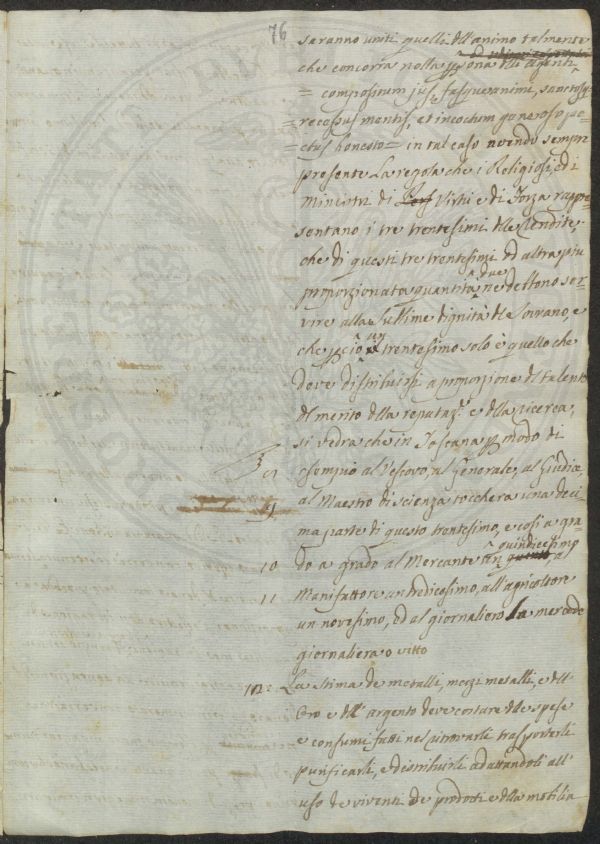 76
saranno uniti quelli dell'animo talmente
che concorra nella persona delli agenti
= compositum jus, fasque animi, sanctosq;
= recessus mentis, et incoctum generoso pe-
= ctus honesto = in tal caso avendo sempre
presente la regola che i Religiosi, ed i
ministri di Virtù e di Forza rappre-
sentano i tre trentesimi delle Rendite,
che di questi tre trentesimi ed altra più
proporzionata quantità due ne dettono ser-
vire alla sublime dignità del Sovrano, e
che perciò un trentesimo solo è quello che
deve distribuirsi a proporzione di talento
del merito della reputaz.e e della ricerca,
si vedrà che in Toscana per modo di
esempio al Vescovo, al Generale, al Giudice,
al Maestro di scienza toccherà una deci-
ma parte di questo trentesimo, e così a gra-
10 do a grado al Mercante un quindicesimo, al
11 Manifattore un tredicesimo, all'agricoltore
un novesimo, ed al giornaliero la mercede
giornaliera o vitto
12: La stima de metalli, mezzi metalli, e dell'
Oro e dell' argento deve costare delle spese
e consumi fatti nel ritrovarli trasportarli
purificarli, e distribuirli adattandoli all'
uso de viventi de prodotti e della mobilia